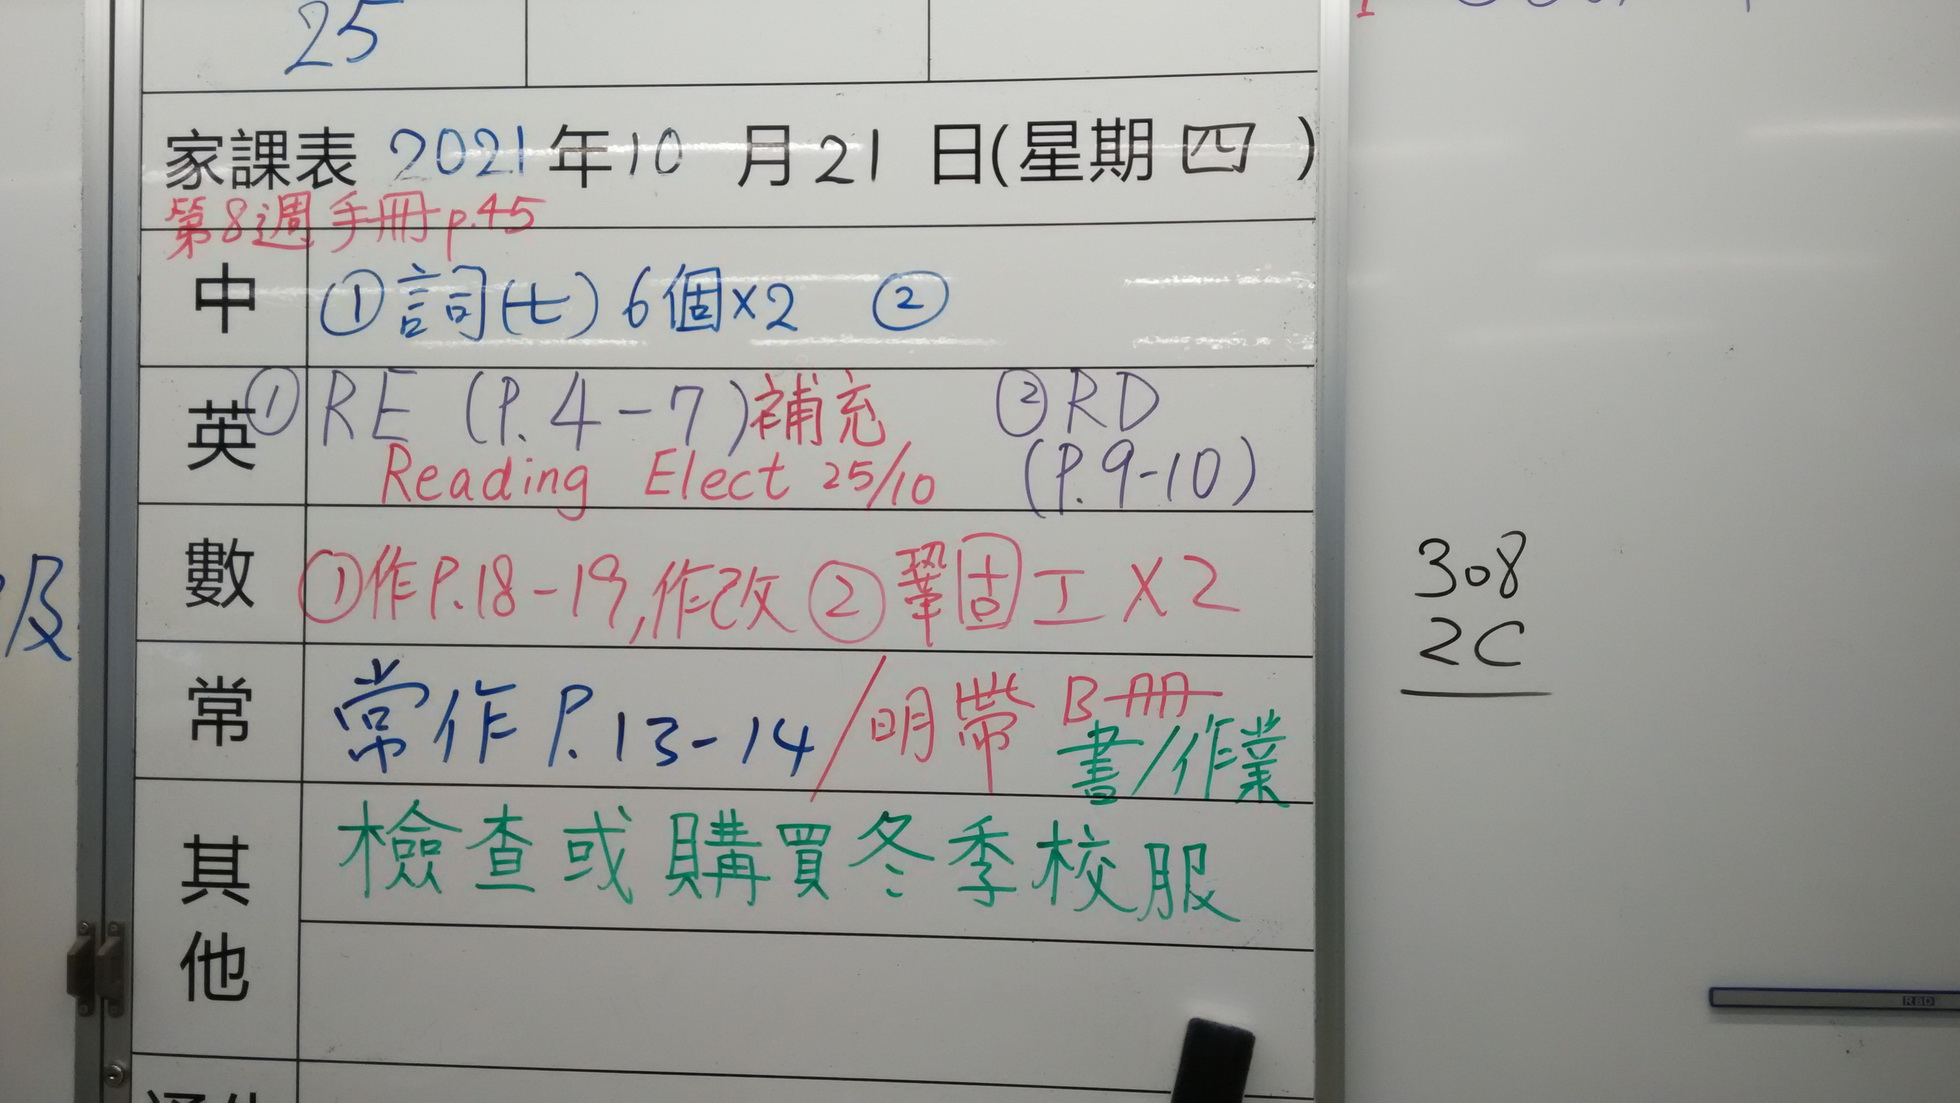 25
家課表 2021年10月21日(星期四)
第8週 手冊 p.45
中 ①詞(七) 6個×2 ②
英 ①RE (P.4-7)補充 ②RD
Reading Elect 25/10 (P.9-10)
數 ①作P.18-19,作改 ②鞏固工×2
常 常作 P.13-14/明帶 B冊
書/作業
其他 檢查或購買冬季校服
及
308
2C